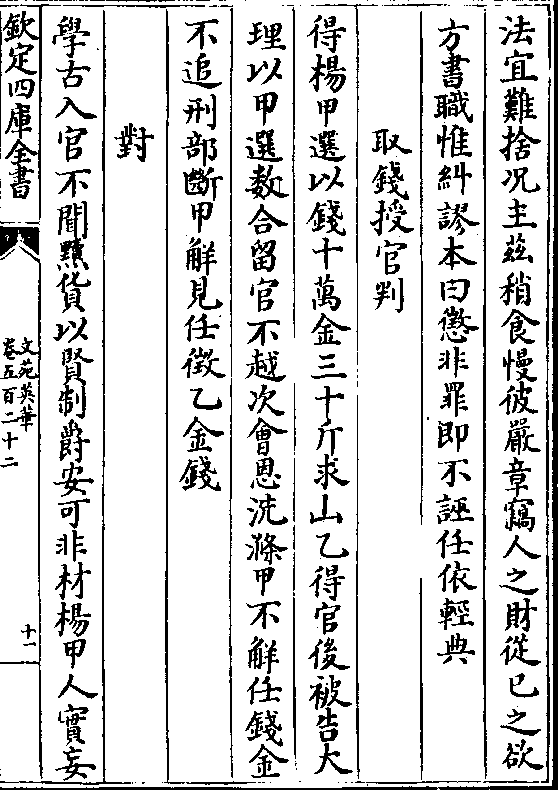 法宜難捨况主茲稍食慢彼嚴章竊人之財從已之欲
方書職惟糾謬本曰懲非罪即不誣任依輕典
取錢授官判
得楊甲選以錢十萬金三十斤求山乙得官後被告大
理以甲選數合留官不越次會恩洗滌甲不解任錢金
不追刑部斷甲解見任徵乙金錢
對
學古入官不聞黷貨以賢制爵安可非材楊甲人實妄
欽定四庫全書
文苑英華
卷五百二十二
十一